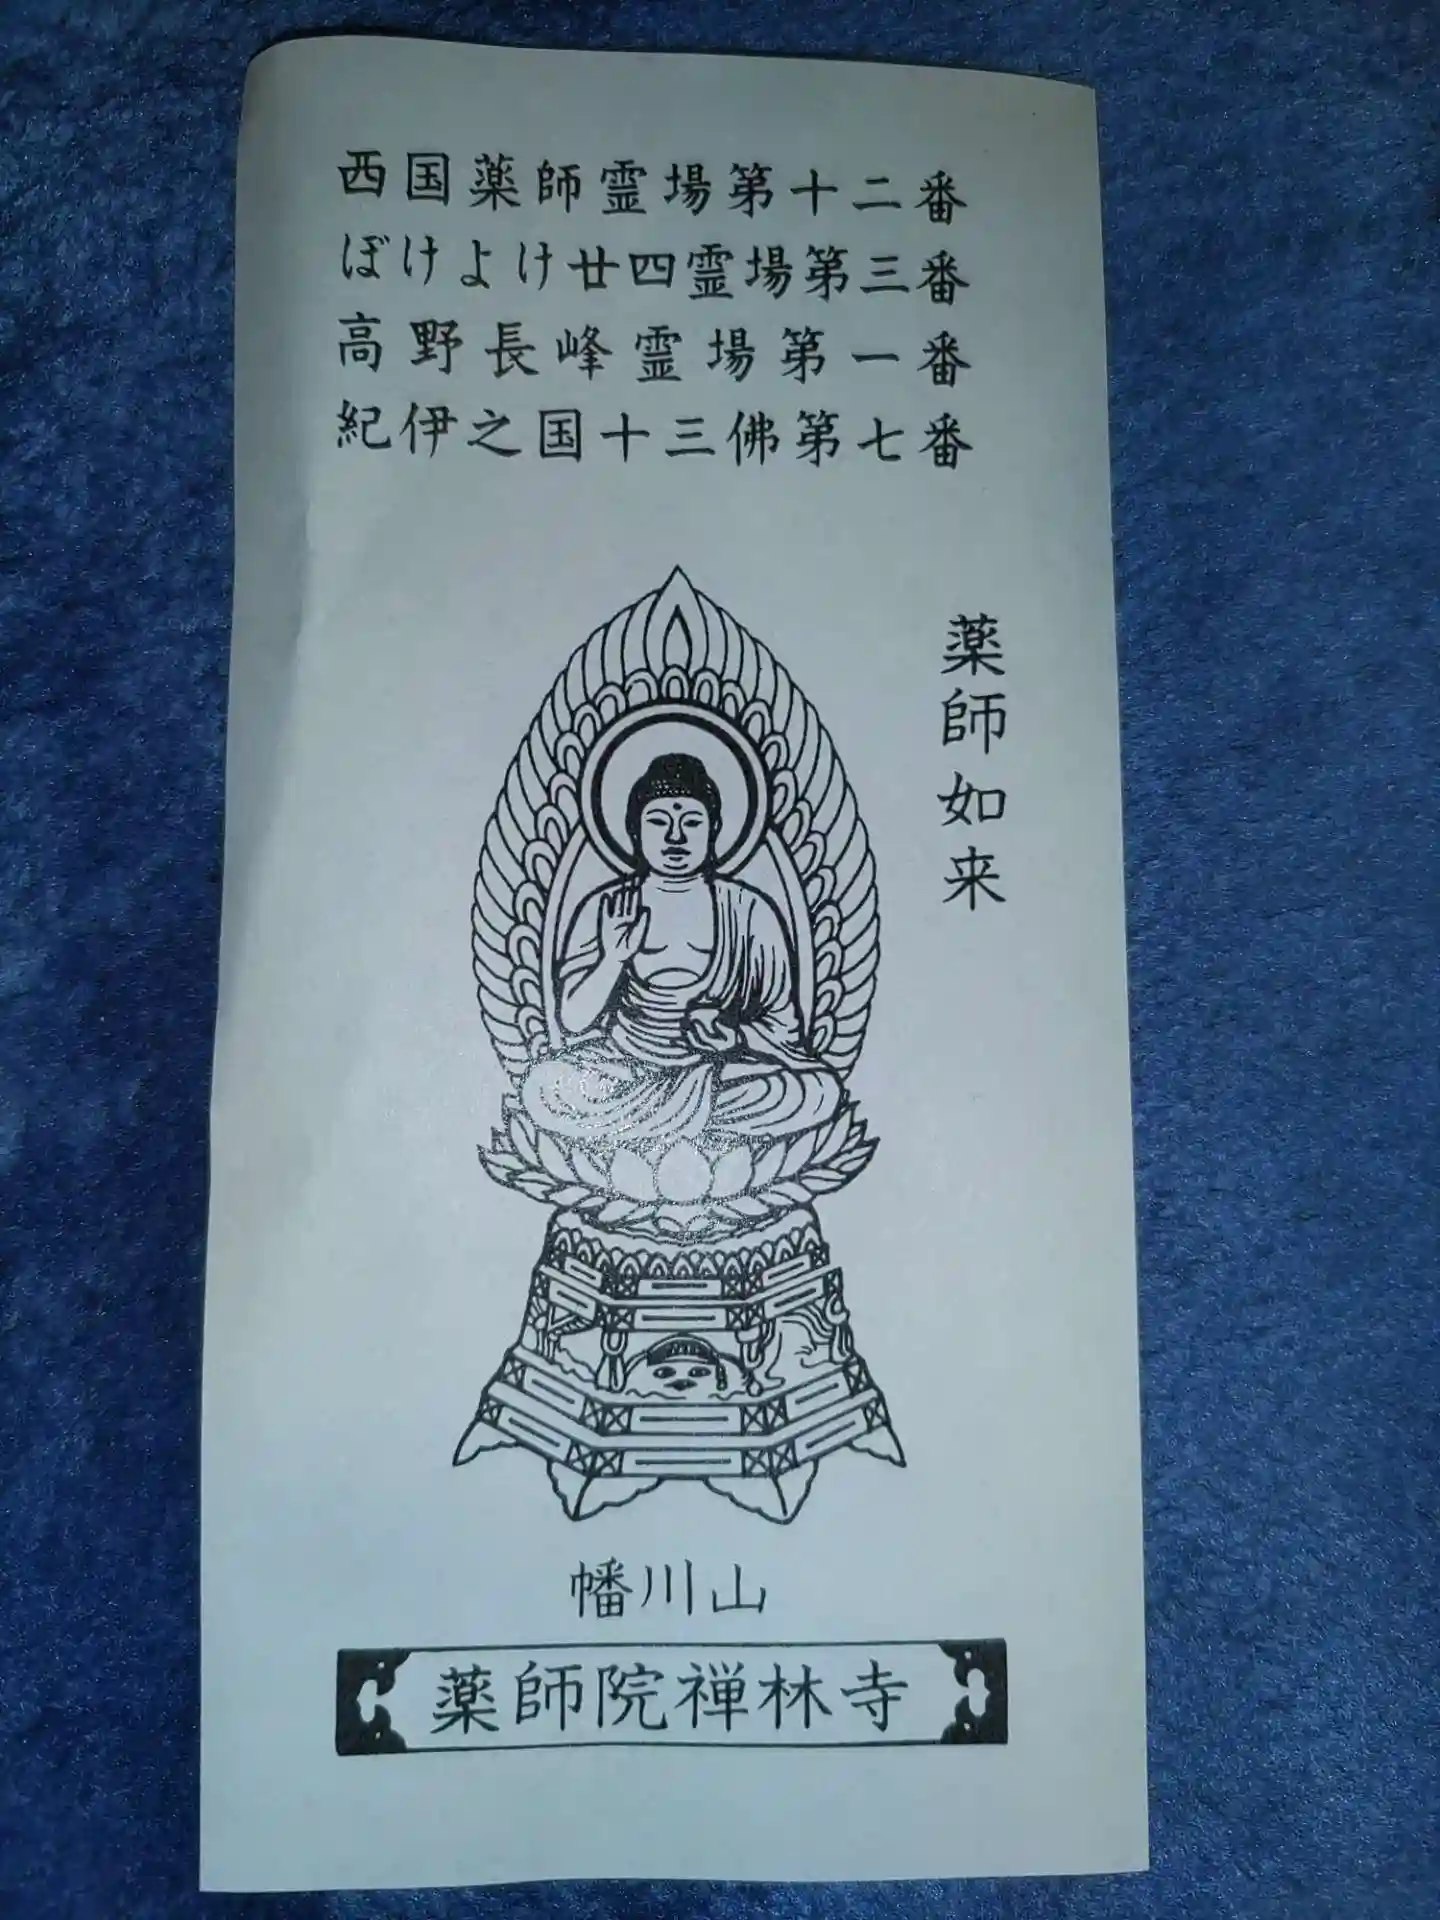 西国薬師霊場第十二番
ぼけよけ廿四霊場第三番
高野長峰霊場第一番
紀伊之国十三佛第七番
薬師如来
幡川山
薬師院禅林寺